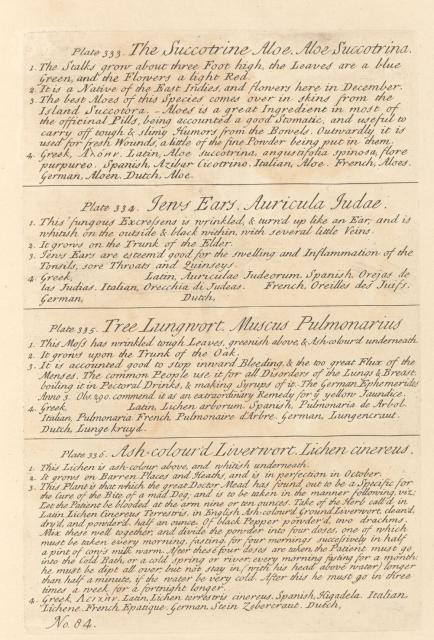 Plate 333. The Succotrine Aloe. Aloe Succotrina.
1. The Stalks grow about three Foot high, the Leaves are a blue
Green, and the Flowers a light Red.
2. It is a Native of the East Indies, and flowers here in December.
3. The best Aloes of this Species comes over in skins from the
Island Succotora. Aloes is a great Ingredient in most of
the officinal Pills, being accounted a good Stomatic, and useful to
carry off tough & slimy Humors from the Bowels. Outwardly it is
used for fresh Wounds, a little of the fine Powder being put in them.
4. Greek, Latin, Aloe succotrina, angustifolia spinosa, flore
purpureo. Spanish, Azibar Cicotrino. Italian, Aloe. French, Aloes.
German, Aloen. Dutch, Aloe.
Plate 334. Jews Ears. Auricula Judae.
1. This fungous Excresens is wrinkled, & turn'd up like an Ear; and is
whitish on the outside & black within, with several little Veins.
2. It grows on the Trunk of the Elder.
3. Jews Ears are esteem'd good for the swelling and Inflammation of the
Tonsils, sore Throats and Quinseys.
4. Greek, Latin, Auriculae Judeorum. Spanish, Orejas de
las Judias. Italian, Orecchia di Judeas. French, Oreilles des Juifs.
German, Dutch,
Plate 335. Tree Lungwort. Muscus Pulmonarius
1. This Moss has wrinkled tough Leaves, greenish above, & Ash-colour'd underneath.
2. It grows upon the Trunk of the Oak.
3. It is accounted good to stop inward Bleeding, & the too great Flux of the
Menses. The common People use it for all Disorders of the Lungs & Breast,
boiling it in Pectoral Drinks, & making Syrups of it. The German Ephemerides
Anno 3. Obs. 290. commend it as an extraordinary Remedy for ye yellow Jaundice.
4. Greek, Latin, Lichen arborum. Spanish, Pulmonaria de Arbol.
Italian, Pulmonaria. French, Pulmonaire d'Arbre. German, Lungencraut.
Dutch, Lunge kruyd.
Plate 336. Ash-colour'd Liverwort. Lichen cinereus.
1. This Lichen is ash-colour above, and whitish underneath.
2. It grows on Barren Places and Heaths, and is in perfection in October.
3. This Plant is that which the great Doctor Mead has found out to be a Specific for
the Cure of the Bite of a mad Dog; and is to be taken in the manner following, viz.
Let the Patient be blooded at the arm nine or ten ounces. Take of the Herb call'd in
Latin Lichen Cinereus Terrestris, in English Ash-colour'd Ground Liverwort, clean'd,
dry'd, and powder'd, half an ounce. Of black Pepper powder'd, two drachms.
Mix these well together, and divide the powder into four doses, one of which
must be taken every morning, fasting, for four mornings successively in half
a pint of cow's milk warm. After these four doses are taken the Patient must go
into the Cold Bath, or a cold spring or river, every morning fasting for a month:
he must be dipt all over, but not stay in (with his head above water) longer
than half a minute, if the water be very cold. After this he must go in three
times a week for a fortnight longer.
4. Greek, Latin, Lichen terrestris cinereus. Spanish, Higadela. Italian,
Lichene. French, Epatique. German, Stein Zebercraut. Dutch,
No. 84.